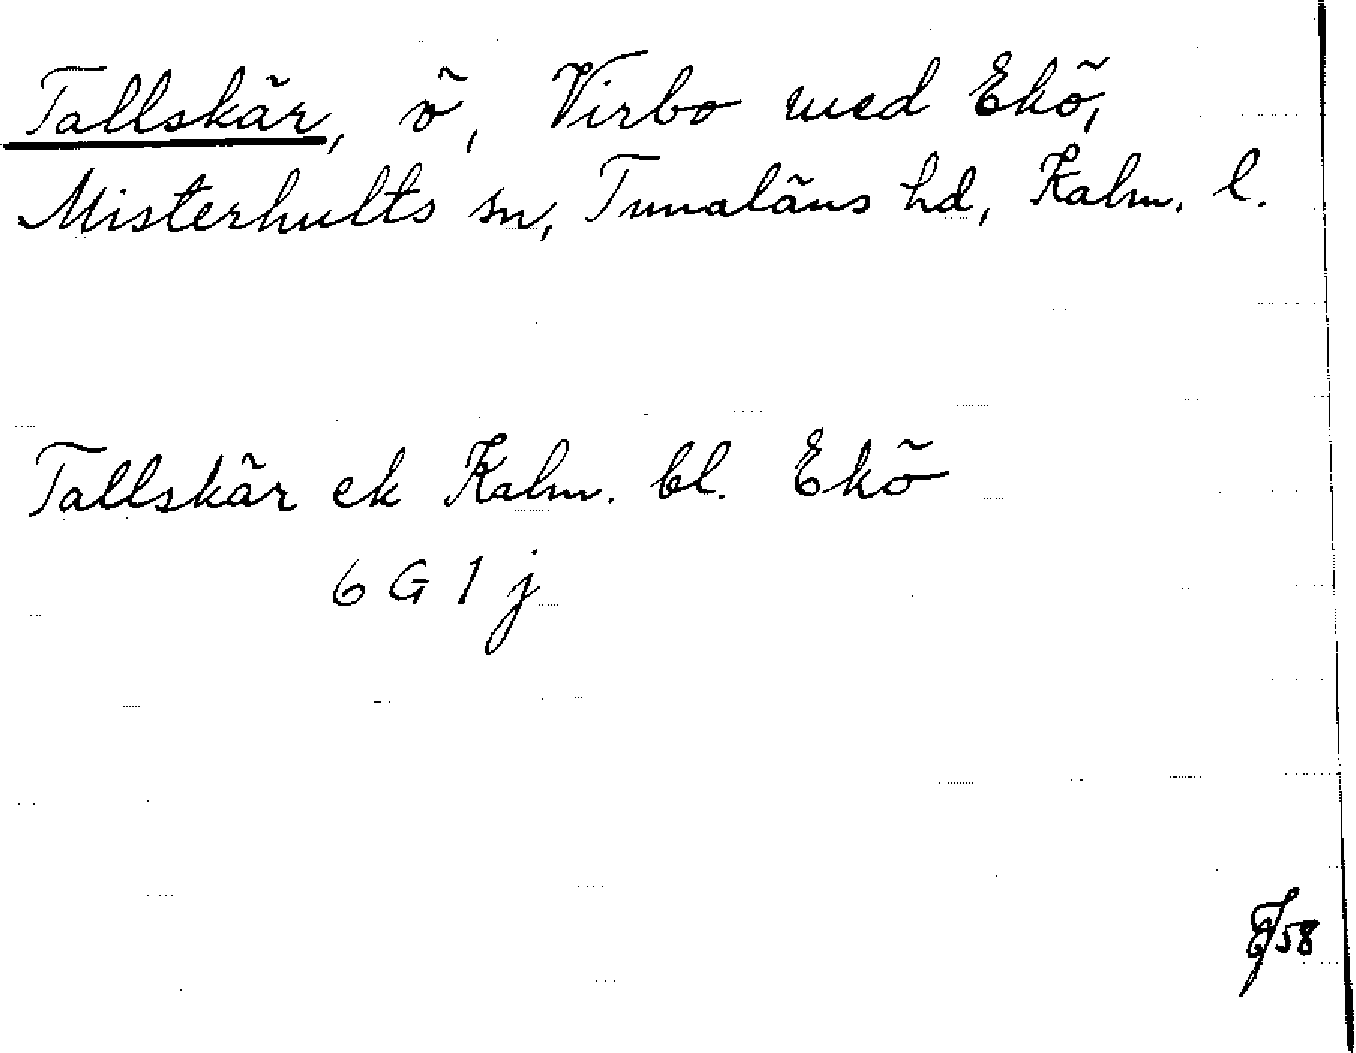 Tallskär, ö, Virbo med Ekö,
Misterhults sn, Tunaläns hd, Kalm. l.
Tallskär ek Kalm. bl. Ekö
6 G 1 j
58